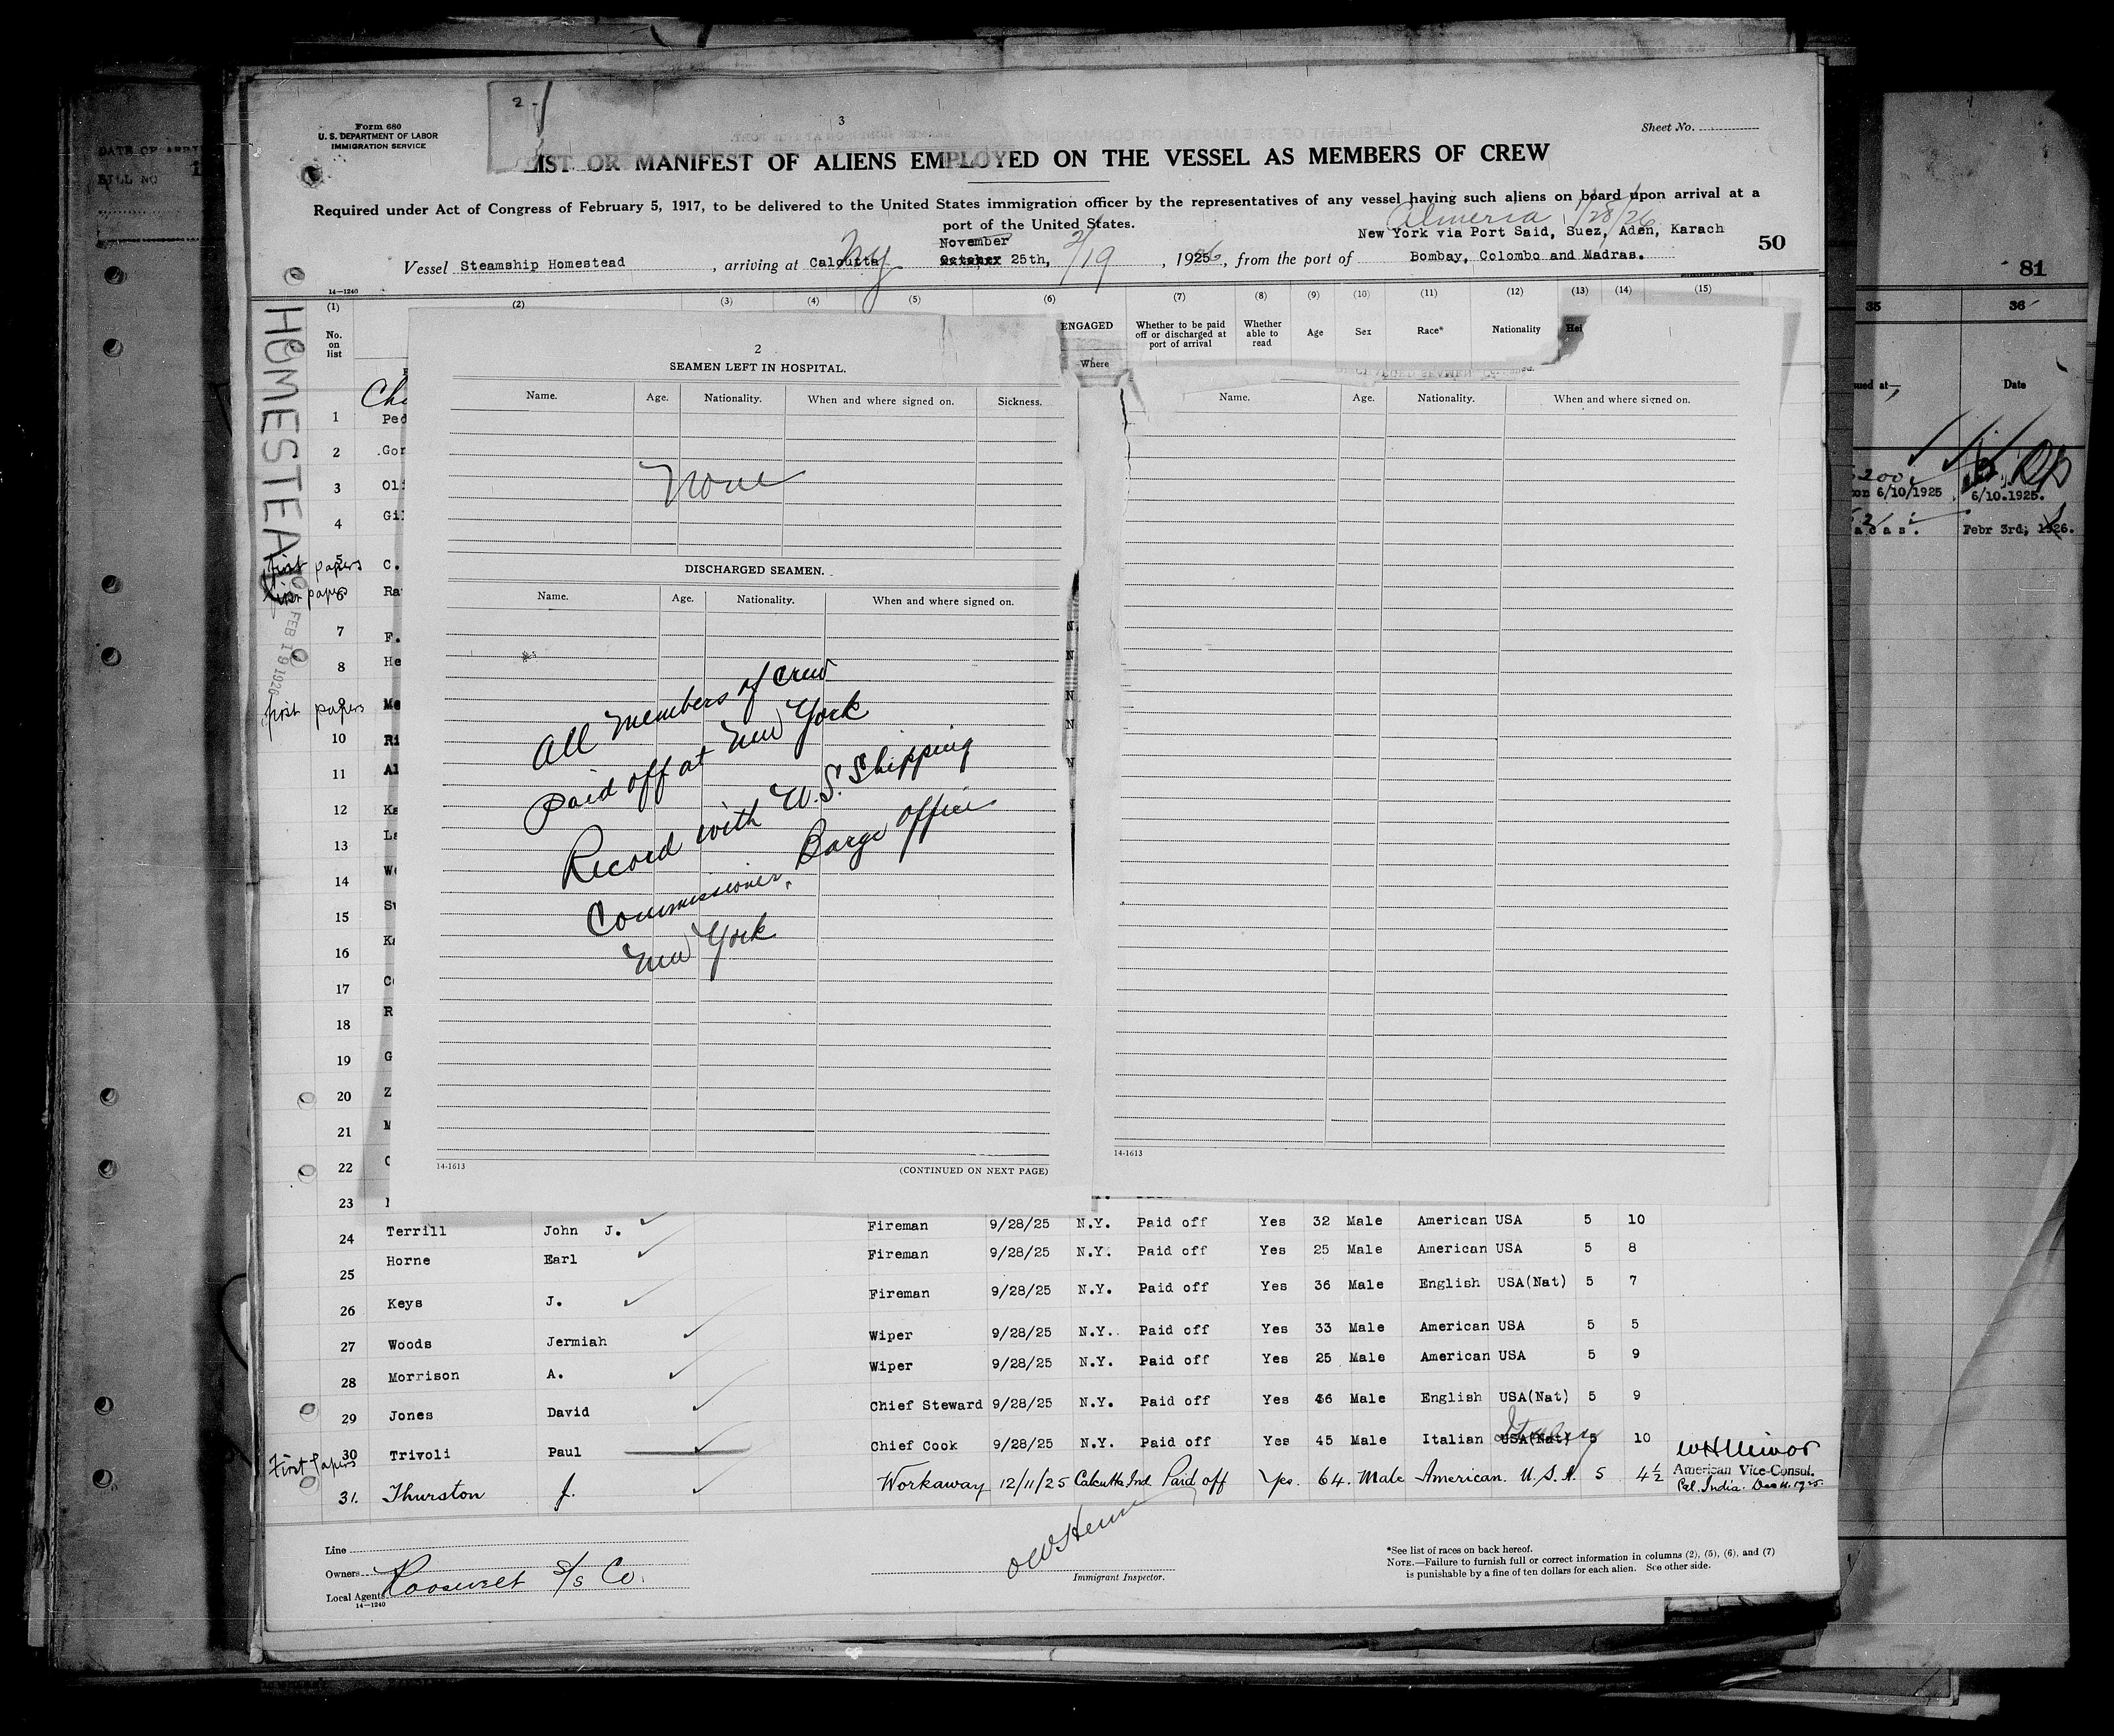 2
3
Form 680
U. S. DEPARTMENT OF LABOR
IMMIGRATION SERVICE
Sheet No.
LIST OR MANIFEST OF ALIENS EMPLOYED ON THE VESSEL AS MEMBERS OF CREW
Required under Act of Congress of February 5, 1917, to be delivered to the United States immigration officer by the representatives of any vessel having such aliens on board upon arrival at a
port of the United States.
Almeria 1/28/26
November
New York via Port Said, Suez, Aden, Karach
50
Vessel Steamship Homestead , arriving at Calcutta NY October 25th, 2/19 , 1926, from the port of Bombay, Colombo and Madras.
14—1240
(1) (2) (3) (4) (5) (6) (7) (8) (9) (10) (11) (12) (13) (14) (15)
No. on list
ENGAGED
Where
Whether to be paid off or discharged at port of arrival
Whether able to read
Age
Sex
Race*
Nationality
Hei
HOMESTEAD
FEB 19 1926
2
SEAMEN LEFT IN HOSPITAL.
Name. Age. Nationality. When and where signed on. Sickness.
None
DISCHARGED SEAMEN.
Name. Age. Nationality. When and where signed on.
All members of crew
paid off at New York
Record with U.S. Shipping
Commissioner, Barge Office
New York
14-1613
(CONTINUED ON NEXT PAGE)
Name. Age. Nationality. When and where signed on.
14-1613
1 Ped
2 Gor
3 Oli
4 Gil
first papers 5 C.
first papers 6 Ra
7 F.
8 He
first papers 9 Me
10 Ri
11 Al
12 Ka
13 La
14 We
15 Su
16 Ka
17 Co
18 R
19 G
20 Z
21 M
22
23
24 Terrill John J. Fireman 9/28/25 N.Y. Paid off Yes 32 Male American USA 5 10
25 Horne Earl Fireman 9/28/25 N.Y. Paid off Yes 25 Male American USA 5 8
26 Keys J. Fireman 9/28/25 N.Y. Paid off Yes 36 Male English USA(Nat) 5 7
27 Woods Jermiah Wiper 9/28/25 N.Y. Paid off Yes 33 Male American USA 5 5
28 Morrison A. Wiper 9/28/25 N.Y. Paid off Yes 25 Male American USA 5 9
29 Jones David Chief Steward 9/28/25 N.Y. Paid off Yes 46 Male English USA(Nat) 5 9
Italy
First Papers 30 Trivoli Paul Chief Cook 9/28/25 N.Y. Paid off Yes 45 Male Italian USA(Nat) 5 10
31. Thurston J. Workaway 12/11/25 Calcutta Ind. Paid off Yes. 64. Male American. U.S.A. 5 4½
WHMinor
American Vice-Consul.
Cal. India. Dec 11. 1925.
Line
Owners
Local Agents Roosevelt S/S Co.
14—1240
Immigrant Inspector.
*See list of races on back hereof.
NOTE.—Failure to furnish full or correct information in columns (2), (5), (6), and (7)
is punishable by a fine of ten dollars for each alien. See other side.
DATE OF ARRI
BILL NO
81
35 36
ued at— Date
200
on 6/10/1925 6/10.1925.
adas. Febr 3rd; 1926.